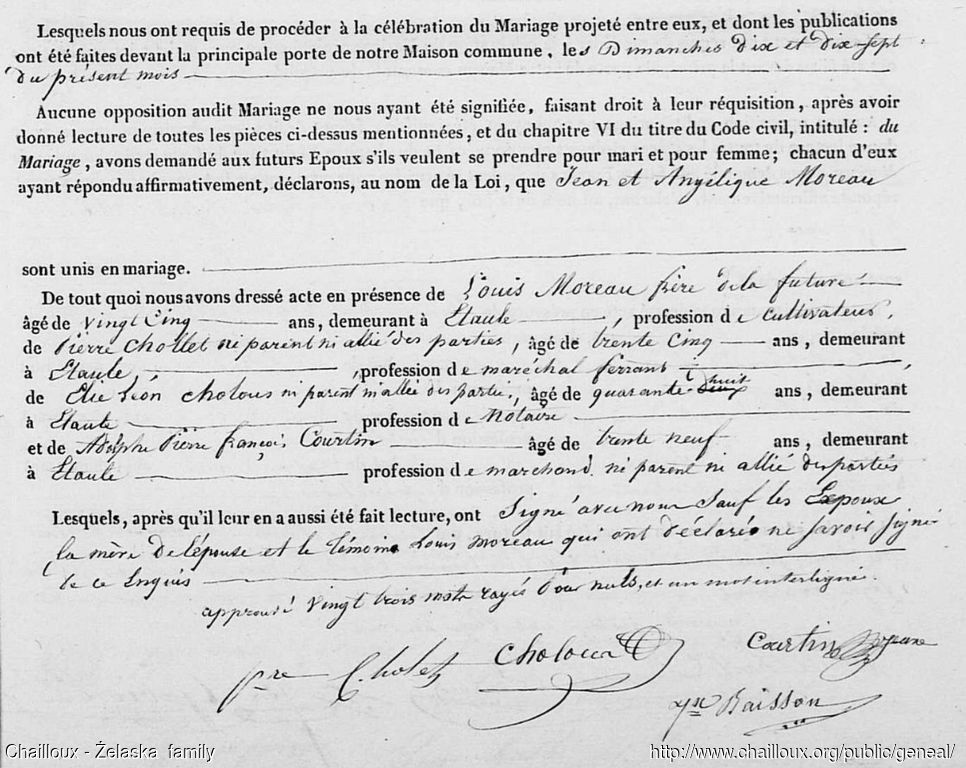 Lesquels nous ont requis de procéder à la célébration du Mariage projeté entre eux, et dont les publications
ont été faites devant la principale porte de notre Maison commune, les Dimanches dix et dix-sept
du présent mois
Aucune opposition audit Mariage ne nous ayant été signifiée, faisant droit à leur réquisition, après avoir
donné lecture de toutes les pièces ci-dessus mentionnées, et du chapitre VI du titre du Code civil, intitulé : du
Mariage, avons demandé aux futurs Epoux s'ils veulent se prendre pour mari et pour femme; chacun d'eux
ayant répondu affirmativement, déclarons, au nom de la Loi, que Jean et Angélique Moreau
sont unis en mariage.
De tout quoi nous avons dressé acte en présence de Louis Moreau frère de la future
âgé de vingt cinq ans, demeurant à Etaule, profession de cultivateur,
de Pierre Chollet ni parent ni allié des parties, âgé de trente cinq ans, demeurant
à Etaule, profession de maréchal ferrant,
de Elie Léon Cholous ni parent ni allié des parties, âgé de quarante huit ans, demeurant
à Etaule profession de Notaire
et de Adolphe Pierre françois Courtin âgé de trente neuf ans, demeurant
à Etaule profession de marchand ni parent ni allié des parties
Lesquels, après qu'il leur en a aussi été fait lecture, ont signé avec nous sauf les Epoux
la mère de l'épouse et le témoin Louis Moreau qui ont déclaré ne savoir signer
de ce Enquis
approuvé vingt trois mots rayés pour nuls, et un mot interligné.
pre Cholet Cholous Courtin jeune
Baisson
Chailloux - Żelaska family http://www.chailloux.org/public/geneal/